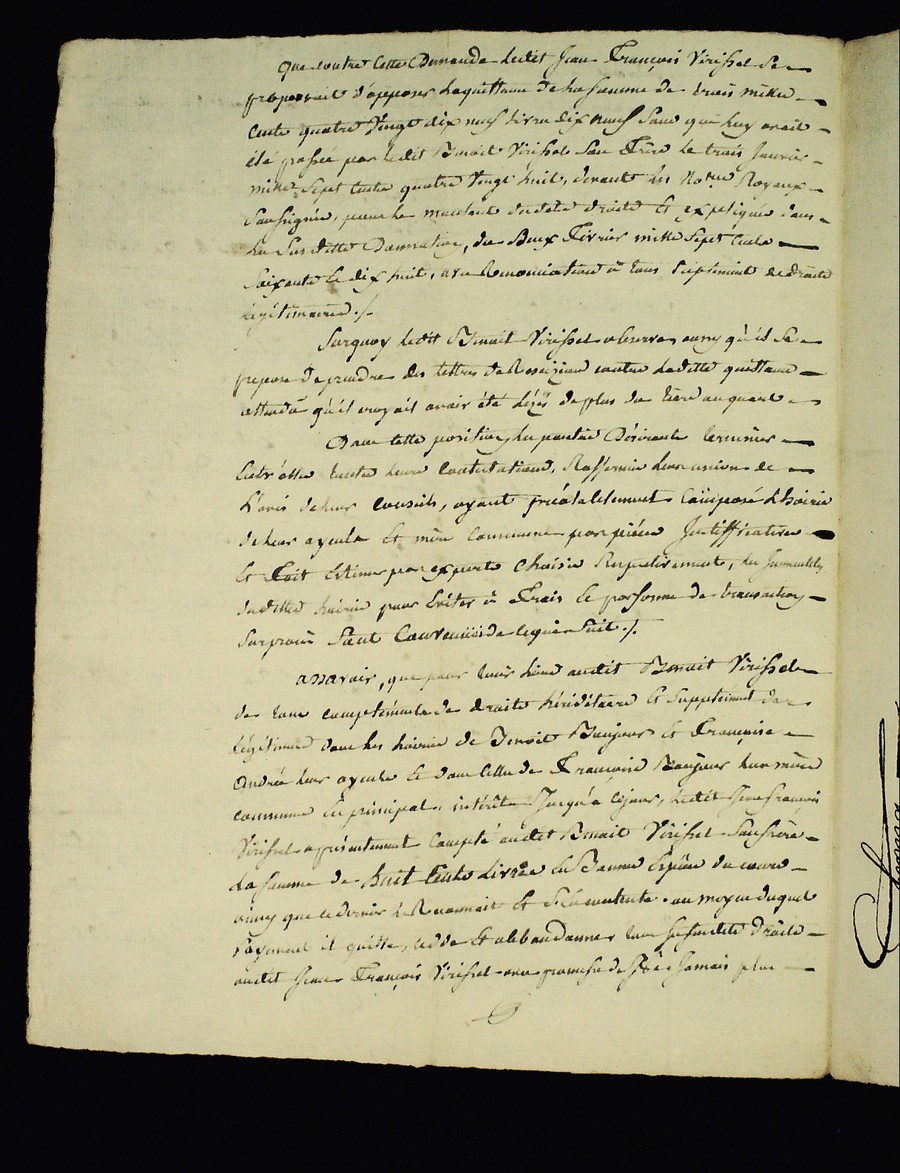 Que contre cette Demande ledit Jean François Virissel se
proposait d'opposer la quittance de la somme de trois mille
cents quatre vingt dix neuf livres dix neuf sous qui luy avait
été passée par ledit Benoit Virissel son frère le trois Janvier
mille sept cents quatre vingt huit, devant les No.res Royaux
soussignés, pour le montant de dits droits et expliquée dans
la susditte Donnation, du Deux Février mille sept cents
soixante et dix huit, avec Renonciation à tous suplement de droits
légitimaires ./.
Surquoy ledit Benoit Virissel observe aussy qu'il se
propose de prendre des lettres de Rescizion contre laditte quittance
attendu qu'il croyait avoir été lézé de plus du tiers au quart
Dans cette position les parties Désirants terminer
entr'elles toutes leurs contestations, Raffermir leur union de
l'avis de leurs conseils, ayant préalablement composé l'hoirie
de leur ayeule et mère commune par pièces justifficatives
et fait estimer par experts choisis Respectivement, les immeubles
de ditte hoirie pour éviter à frais et par forme de transaction
sur procès sont convenus de ce qui suit ./.
assavoir, que pour tenir lieu audit Benoit Virissel
de tous compléments de droits héréditaires et supplement de
légitimes dans les hoiries de Benoit Bonjour et Françoise
Andrée leur ayeule et dans celle de Françoise Bonjour leur mère
commune en principal, intérêts jusqu'à ce jour, ledit Jean François
Virissel a présentement compté audit Benoit Virissel son frère
la somme de huit cents livres en bonnes espèces du cours
ainsy que ce dernier le Reconnait et s'en contente. au moyen duquel
payement il quitte, cedde et abbandonne tous ses susdits droits
audit Jean François Virissel avec promesse de jamais plus